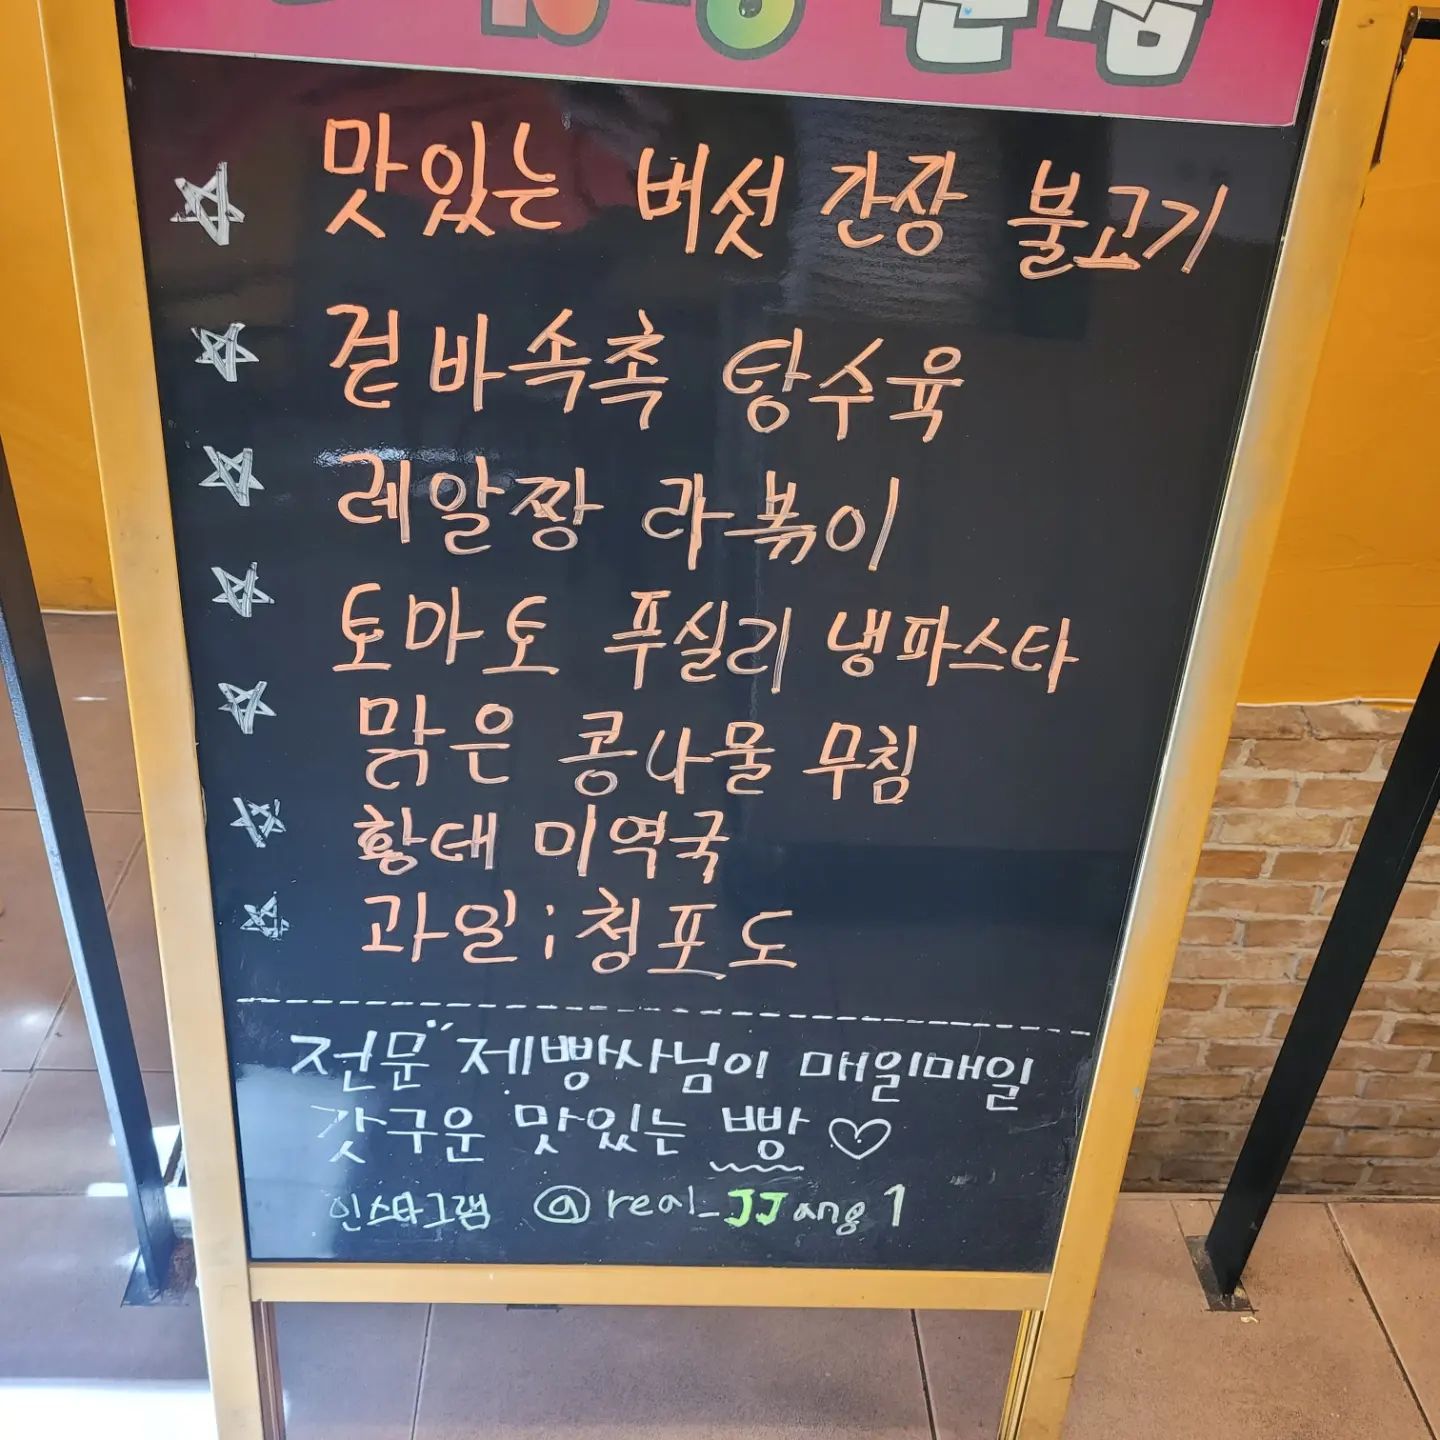 맛있는 버섯 간장 불고기
겉바속촉 탕수육
레알짱 라볶이
토마토 푸실리 냉파스타
맑은 콩나물 무침
황태 미역국
과일;청포도
전문 제빵사님이 매일매일
갓구운 맛있는 빵♡
인스타그램 @real_JJang1